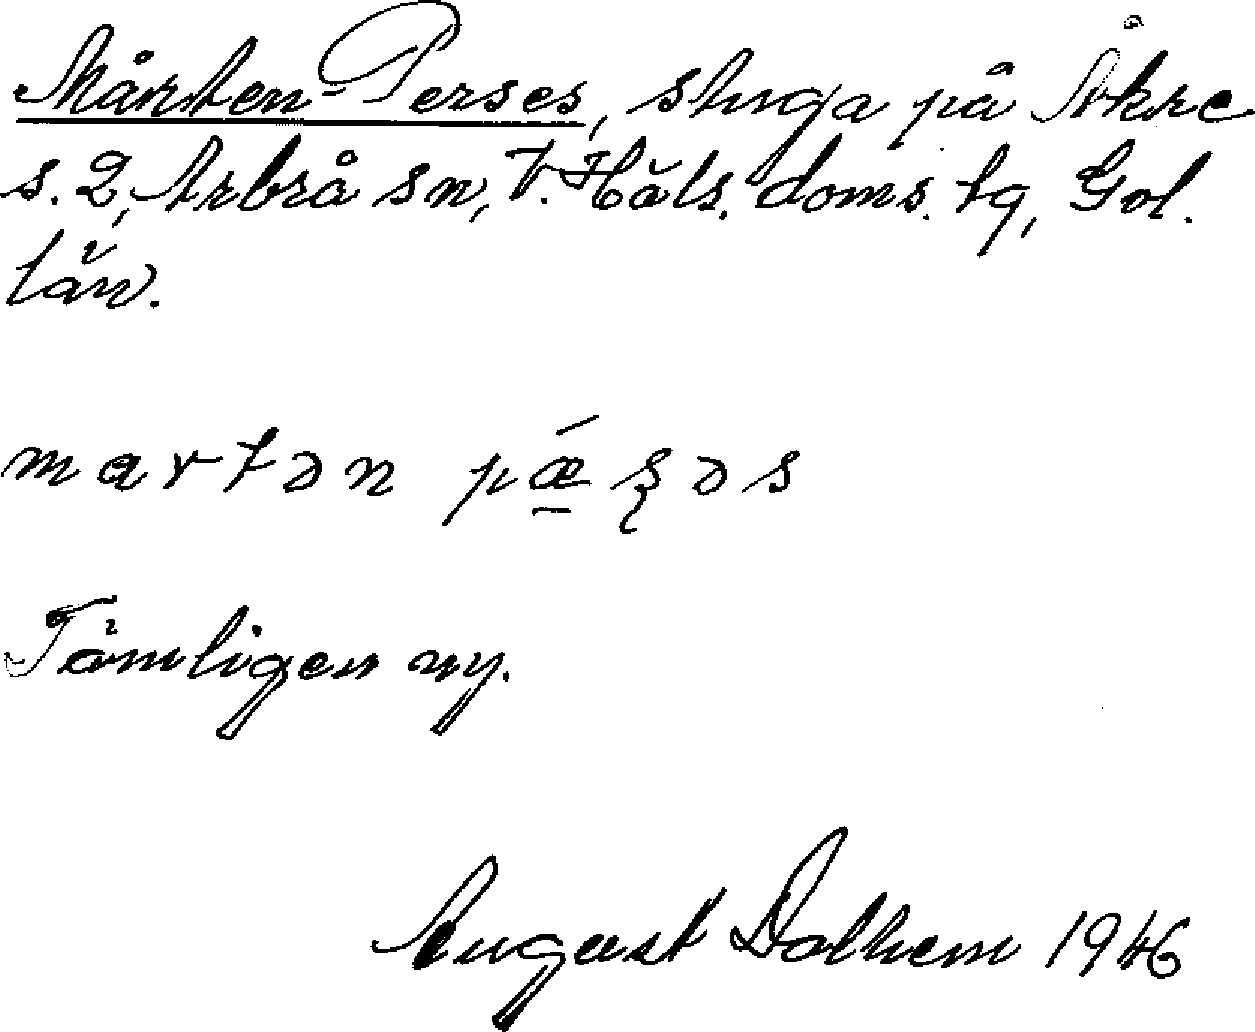 Mårten-Perses, stuga på Åkre
s. 2, Arbrå sn, V. Häls. doms. tg, Gvl.
län.
martən pǽ̱ʂəs
Tämligen ny.
August Dalhem 1946